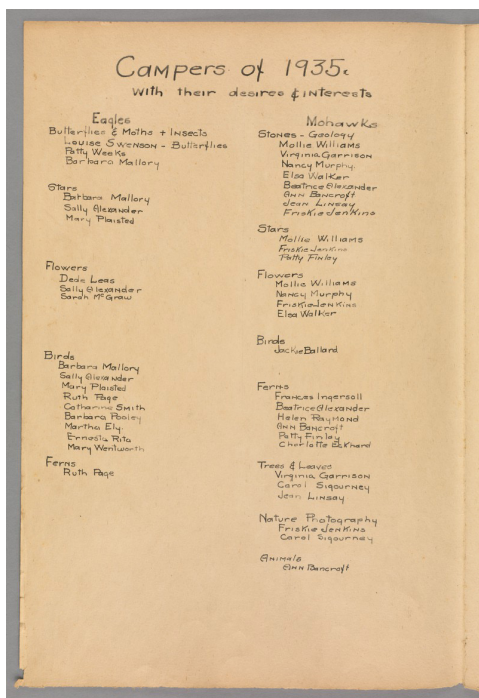 Campers of 1935.
with their desires & interests
Eagles
Butterflies & Moths + Insects
Louise Swenson - Butterflies
Patty Weeks
Barbara Mallory
Stars
Barbara Mallory
Sally Alexander
Mary Plaisted
Flowers
Dede Leas
Sally Alexander
Sarah McGraw
Birds
Barbara Mallory
Sally Alexander
Mary Plaisted
Ruth Page
Catharine Smith
Barbara Pooley
Martha Ely.
Ernesta Rita
Mary Wentworth
Ferns
Ruth Page
Mohawks
Stones - Geology
Mollie Williams
Virginia Garrison
Nancy Murphy.
Elsa Walker
Beatrice Alexander
Ann Bancroft
Jean Linsay
Friskie Jenkins
Stars
Mollie Williams
Friskie Jenkins
Patty Finley
Flowers
Mollie Williams
Nancy Murphy
Friskie Jenkins
Elsa Walker
Birds
Jackie Ballard
Ferns
Frances Ingersoll
Beatrice Alexander
Helen Raymond
Ann Bancroft
Patty Finley
Charlotte Eckhard
Trees & Leaves
Virginia Garrison
Carol Sigourney
Jean Linsay
Nature Photography
Friskie Jenkins
Carol Sigourney
Animals
Ann Bancroft